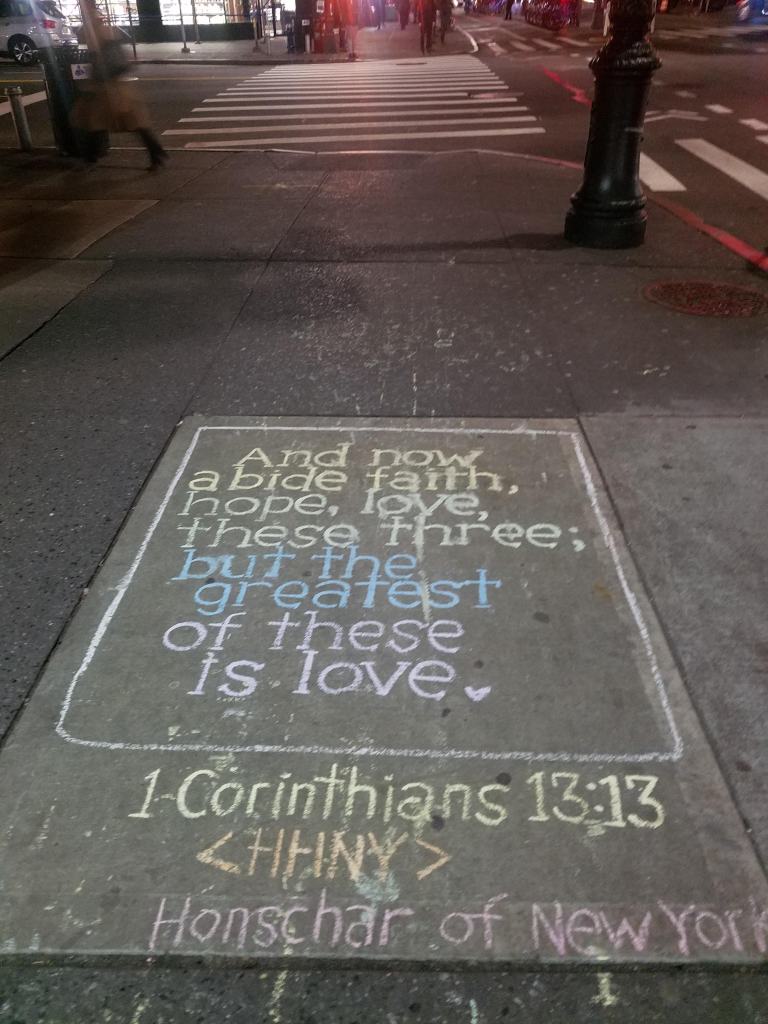 And now
abide faith,
hope, love,
these three;
but the
greatest
of these
is love.
1-Corinthians 13:13
<HHNY>
Honschar of New York